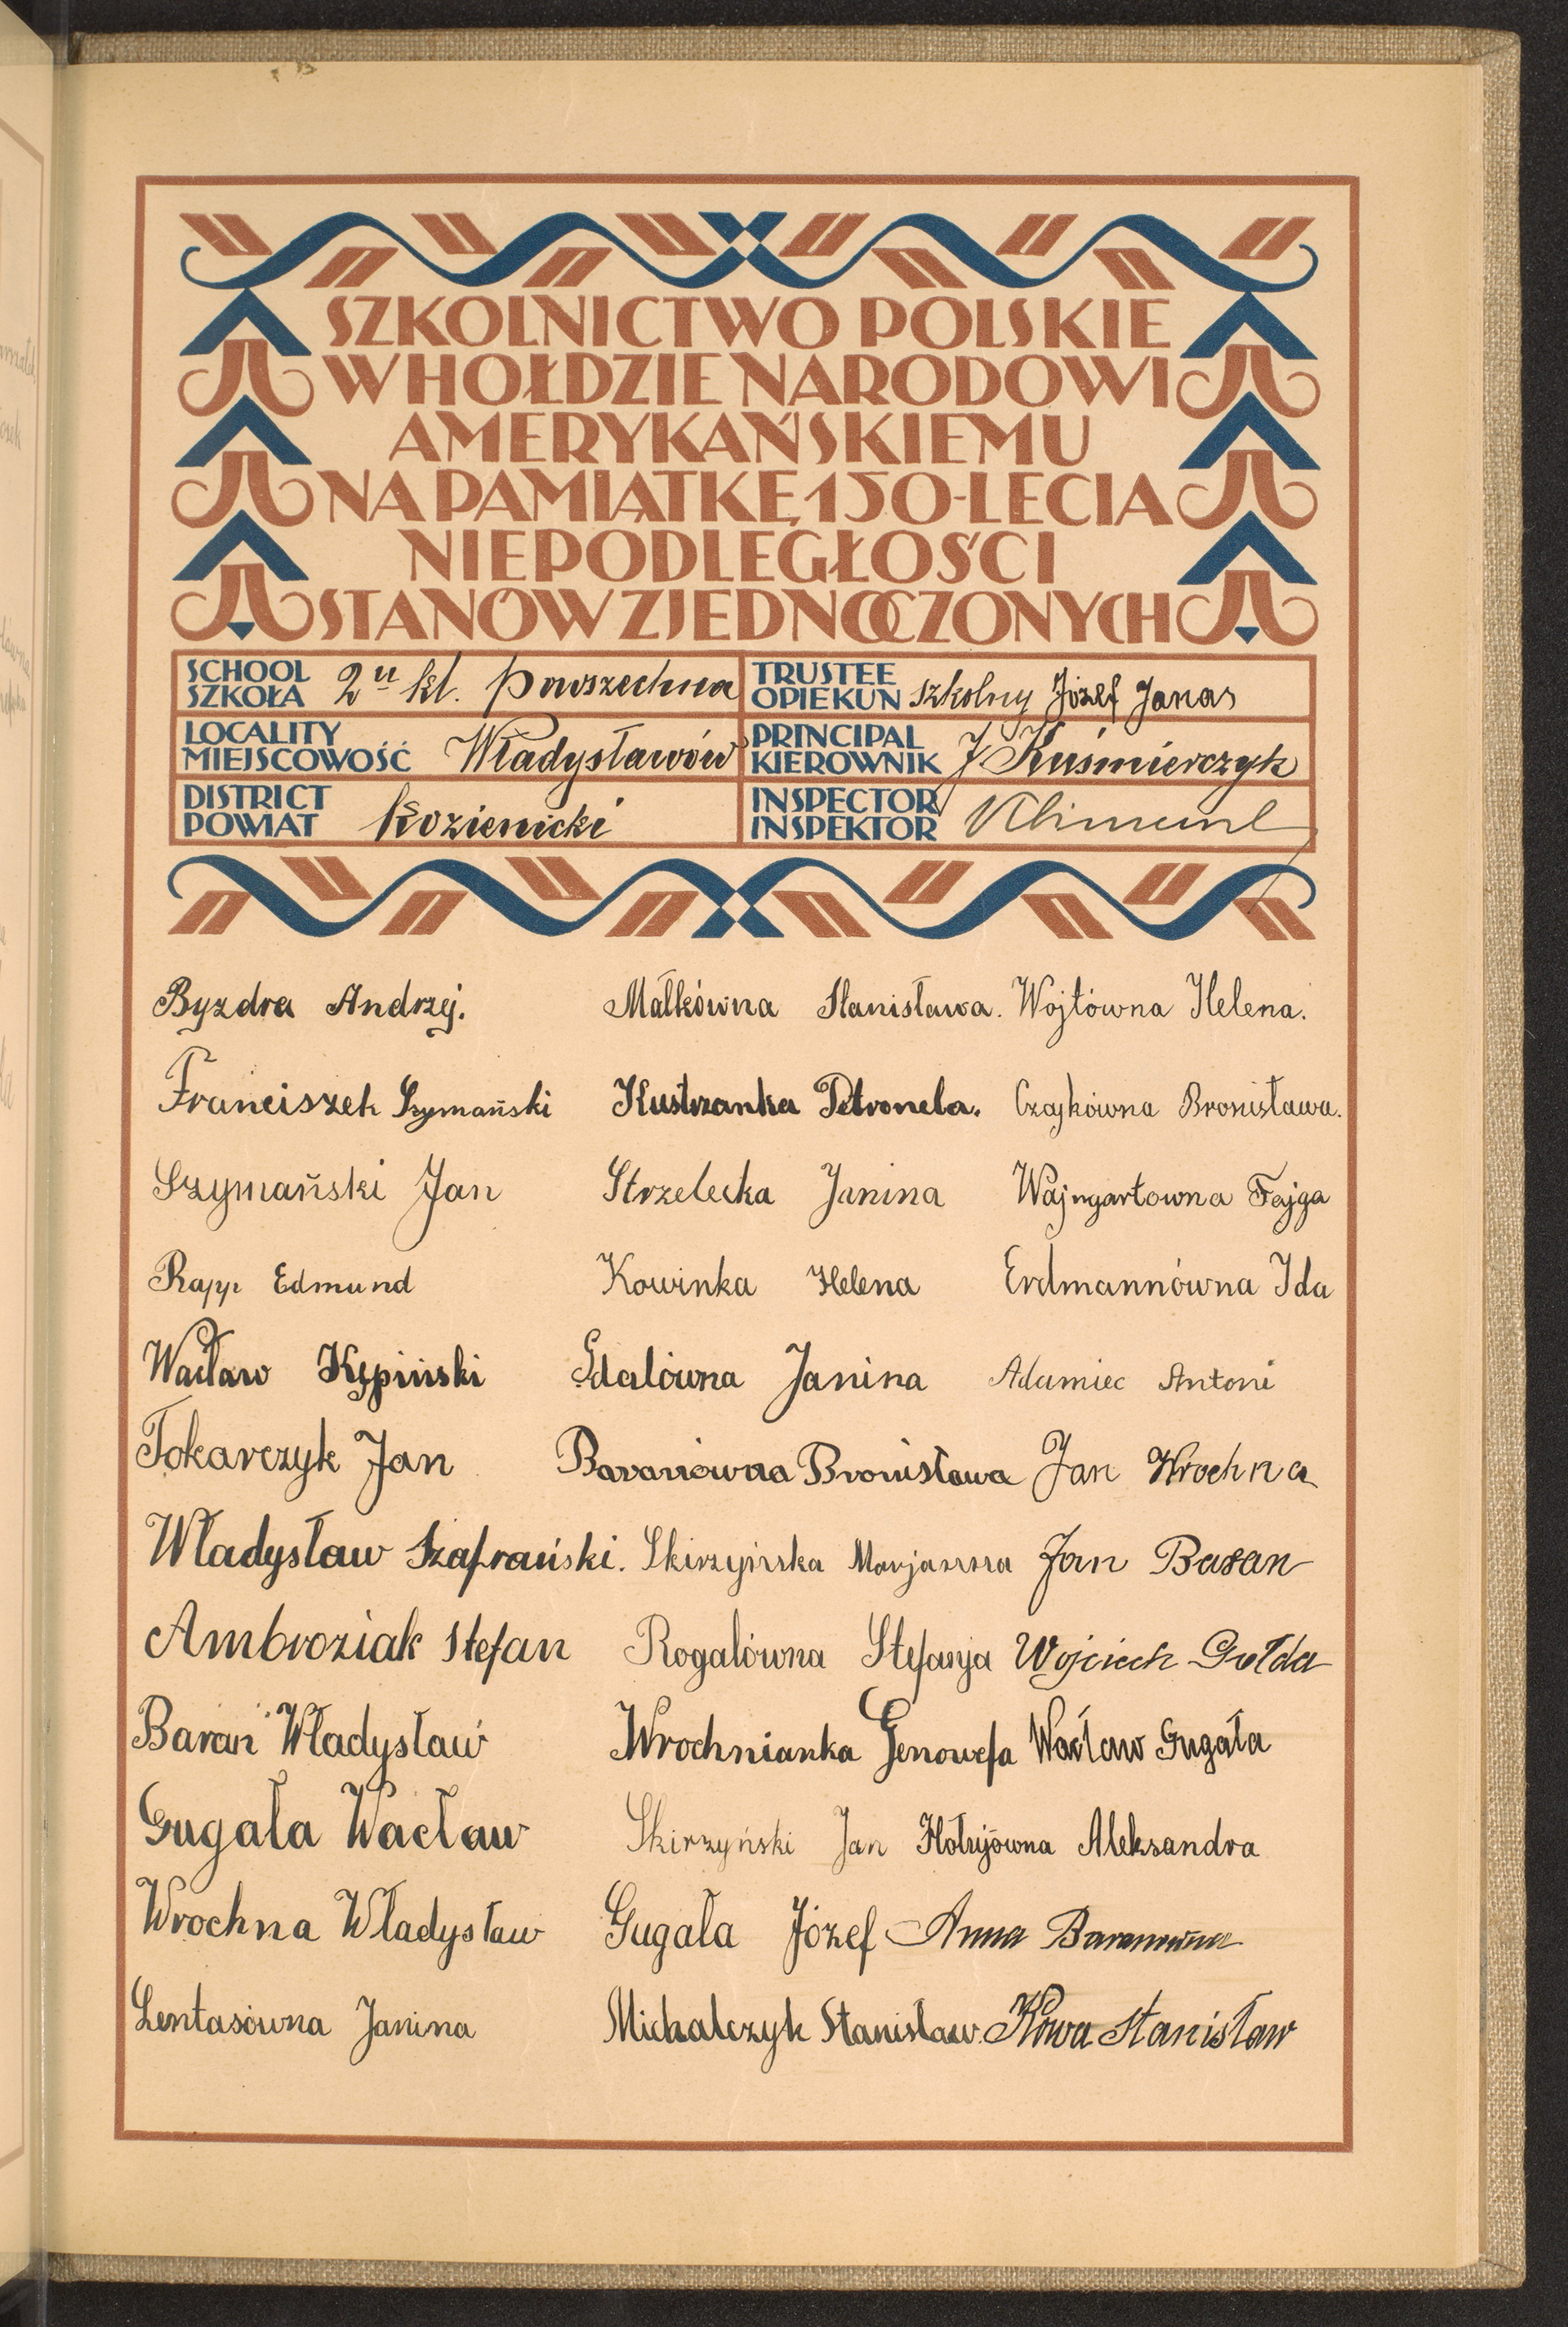 SZKOLNICTWO POLSKIE
W HOŁDZIE NARODOWI
AMERYKAŃSKIEMU
NA PAMIĄTKĘ 150-LECIA
NIEPODLEGŁOŚCI
STANÓW ZJEDNOCZONYCH
SCHOOL
SZKOŁA 2u kl. Powszechna
TRUSTEE
OPIEKUN szkolny Józef Janas
LOCALITY
MIEJSCOWOŚĆ Władysławów
PRINCIPAL
KIEROWNIK J Kuśmierczyk
DISTRICT
POWIAT Kozienicki
INSPECTOR
INSPEKTOR
Byzdra Andrzej.
Franciszek Szymański
Szymański Jan
Rapp Edmund
Wacław Kępiński
Tokarczyk Jan
Władysław Szafrański.
Ambroziak Stefan
Baran Władysław
Gugała Wacław
Wrochna Władysław
Lentasówna Janina
Małkówna Stanisława.
Kustrzanka Petronela.
Strzelecka Janina
Kowinka Helena
Janina
Baranówna Bronisława
Skirzyńska Marjanna
Rogalówna Stefanja
Wrochnianka Genowefa
Skirzyński Jan
Gugała Józef
Michalczyk Stanisław.
Wojtówna Helena.
Czajkówna Bronisława.
Wajngartowna Fajga
Erdmannówna Ida
Adamiec Antoni
Jan Wrochna
Jan Basan
Wojciech Gołda
Wacław Gugała
Aleksandra
Anna Baranówna
Stanisław